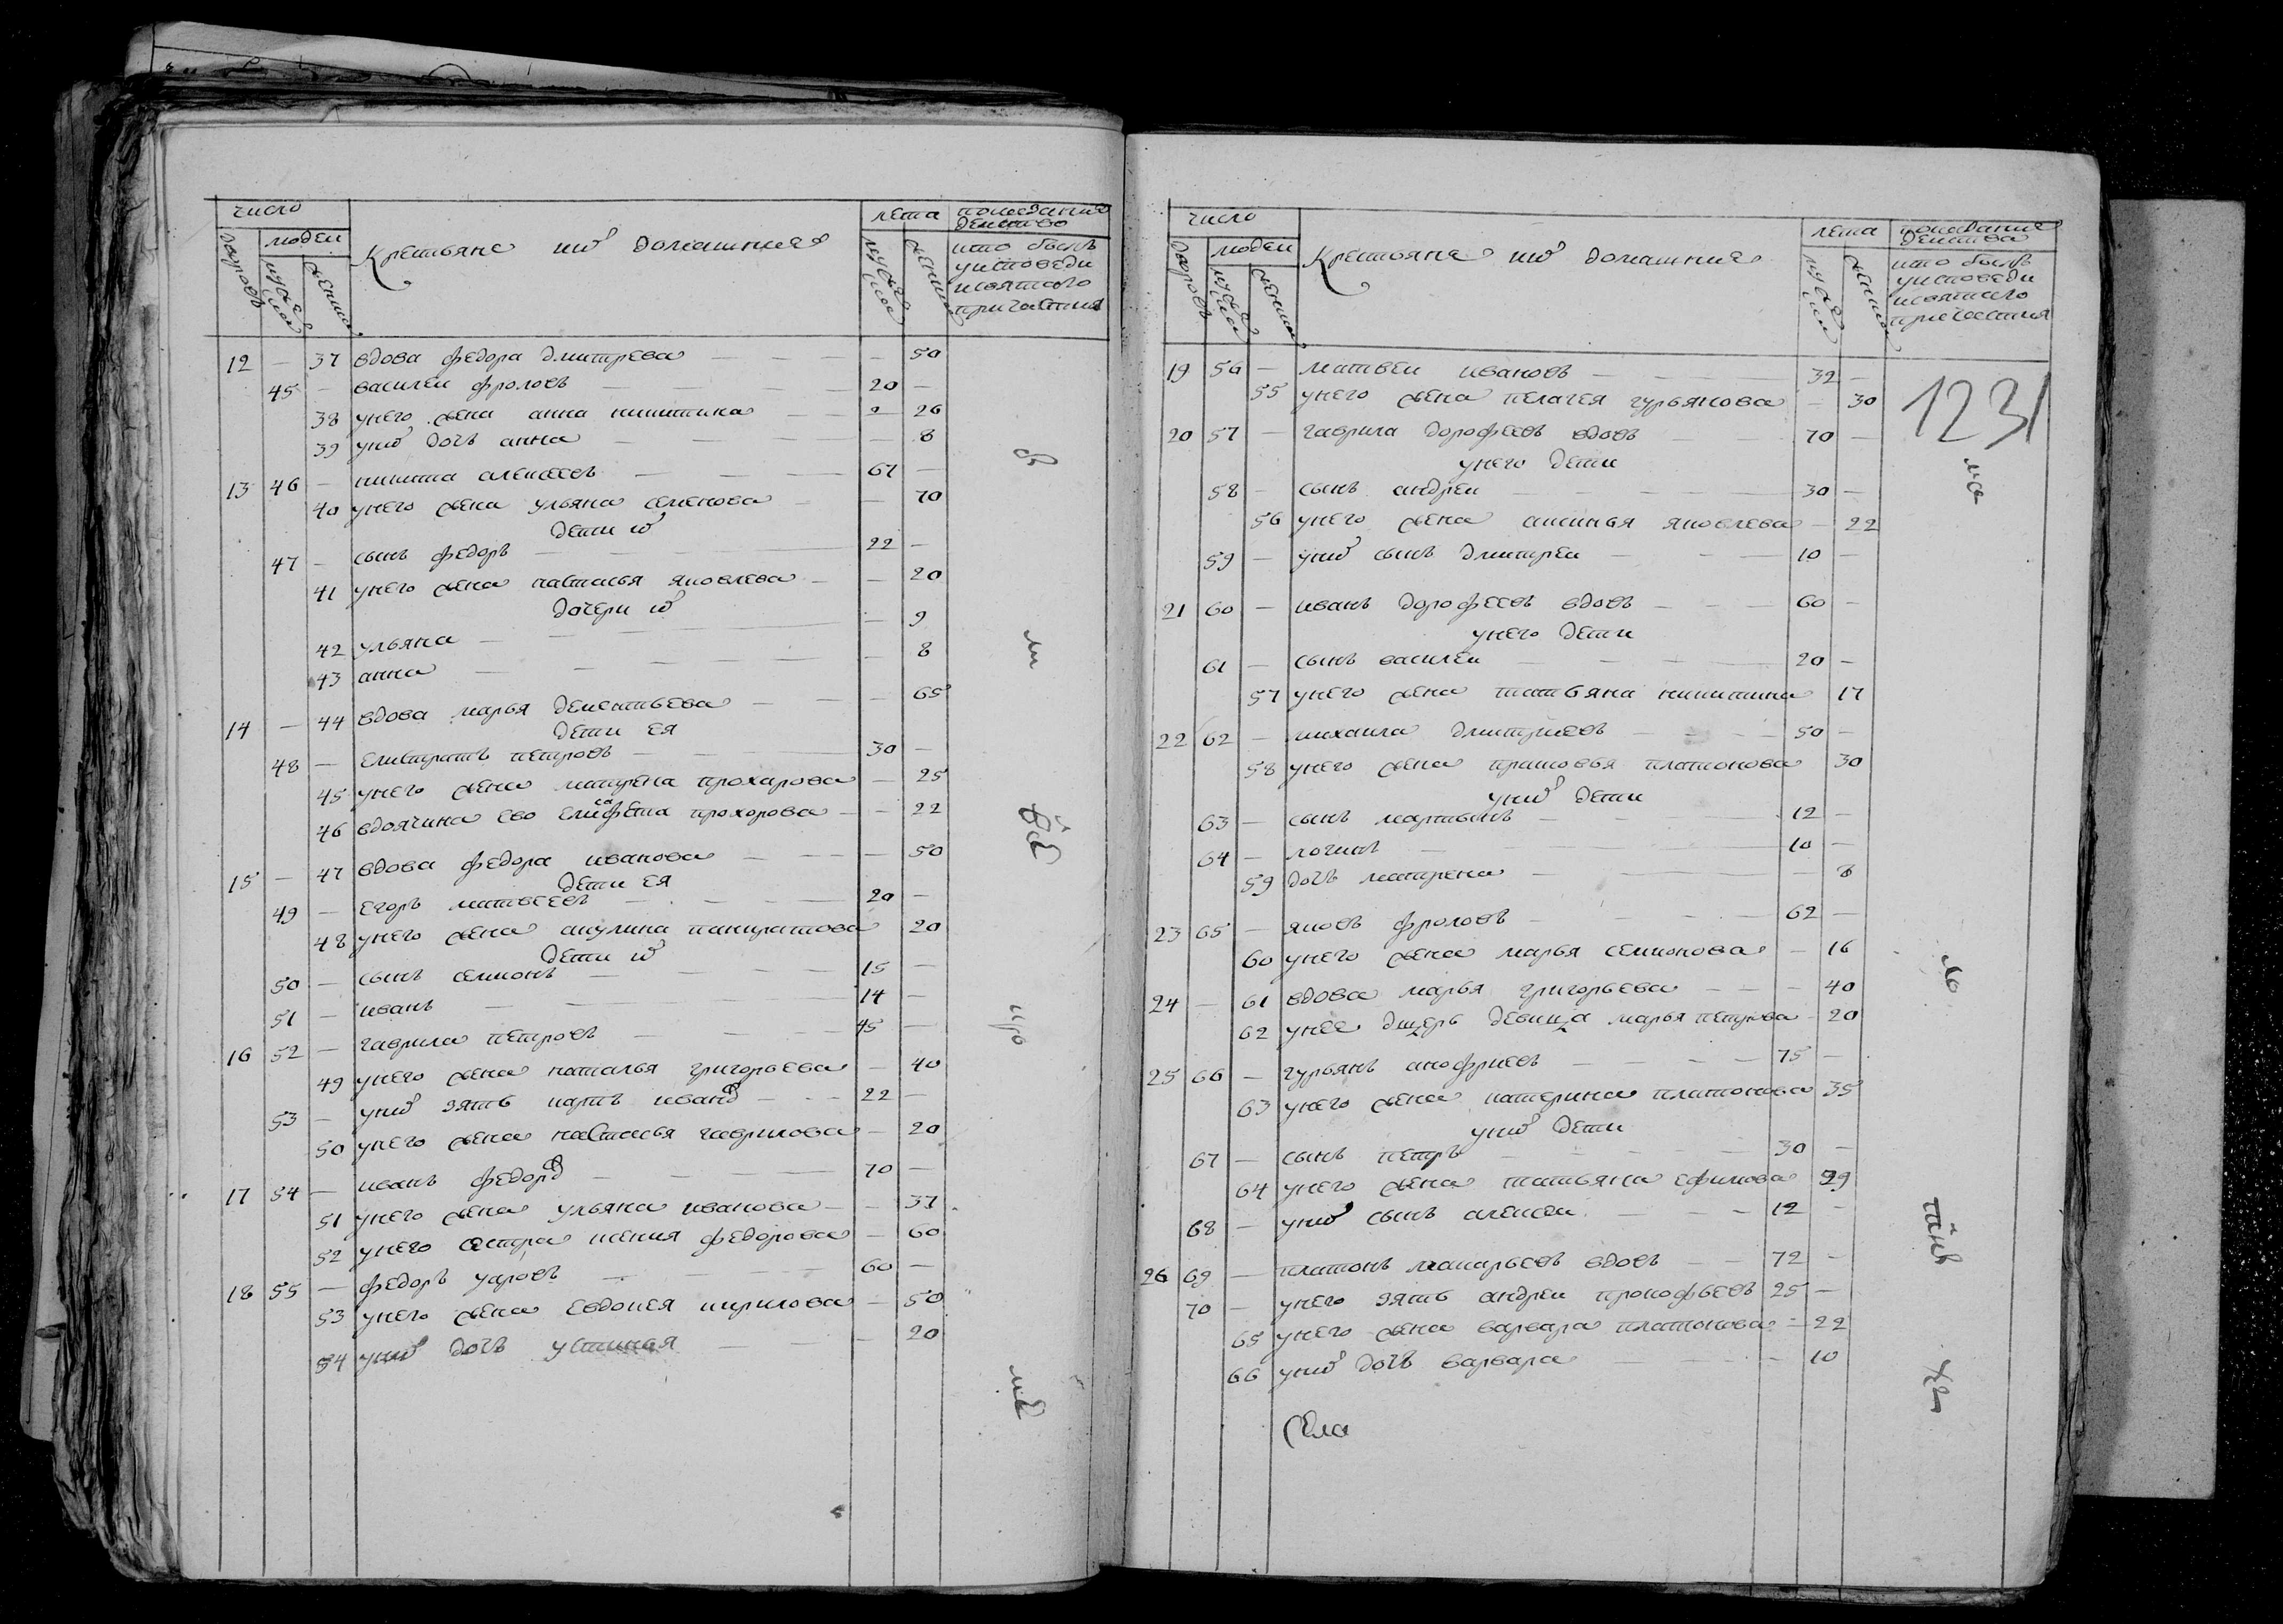 число
людей
дворовъ
мужеска
женска
Крестьяне ихъ домашние
лета
мужеска
женска
показание действо
кто былъ
уисповеди
исвятаго
причастия
12 — 37 вдова федора дмитрева — — — 50
45 — василеи фроловъ — — 20 —
38 унего жена анна никитина — — 26
39 унихъ дочь анна — — 8
13 46 — никита алексеевъ — — 67 —
40 унего жена ульяна семенова — — 70
дети ихъ
47 — сынъ федоръ — 22 —
41 унего жена настасья яковлева — — 20
дочери ихъ
42 ульяна — — — 9
43 анна — — — 8
14 — 44 вдова марья дементьева — — — 65
дети ея
48 — елистратъ петровъ — — 30 —
45 унего жена матрена прохарова — 25
46 вдоячина ево елисафета прохорова — — 22
15 — 47 вдова федора иванова — — — 50
дети ея
49 — егоръ матвеевъ — — 20 —
48 унего жена акулина панкратова 20
дети ихъ
50 — сынъ семионъ — — 15 —
51 — иванъ — — 14 —
16 52 — гаврила петровъ — — 45 —
49 унего жена наталья григорьева — 40
53 — унихъ зять карпъ иванов — — 22 —
50 унего жена настасья гаврилова — 20
17 54 — иванъ федоров — — 70 —
51 унего жена ульяна иванова — — 37
52 унего сестра ксения федорова — 60
18 55 — федоръ уаровъ — — 60 —
53 унего жена евдокея кирилова — 50
54 унихъ дочь устинья — — — 20
число
людей
дворовъ
мужеска
женска
Крестьяне ихъ домашние
лета
мужеска
женска
показание действа
кто былъ
уисповеди
исвятаго
причастия
1231
19 56 — матвеи ивановъ — — 32 —
55 унего жена пелагея гурьянова — 30
20 57 — гаврила дорофеевъ вдовъ — 70 —
унего дети
58 — сынъ андреи — — 30 —
56 унего жена аксинья яковлева — 22
59 — унихъ сынъ дмитреи — — 10 —
21 60 — иванъ дорофеевъ вдовъ — — 60 —
унего дети
61 — сынъ василеи — — 20 —
57 унего жена татьяна никитина 17
22 62 — михаила дмитриевъ — — 50 —
58 унего жена прасковья платонова 30
унихъ дети
63 — сынъ мартынъ — — 12 —
64 — логинъ — — 10 —
59 дочь матрена — — — 8
23 65 — яковъ фроловъ — — 62 —
60 унего жена марья семионова — 16
24 — 61 вдова марья григорьева — — — 40
62 унее дщерь девица марья петрова — 20
25 66 — гурьянъ анофриевъ — — 75 —
63 унего жена катерина платонова 35
унихъ дети
67 — сынъ петръ — — 30 —
64 унего жена татьяна ефимова 29
68 — унихъ сынъ алексеи — — 12 —
26 69 — платонъ макарьевъ вдовъ — — 72 —
70 — унего зять андреи прокофьевъ 25 —
65 унего жена варвара платонова — 22
66 унихъ дочь варвара — — 10
села